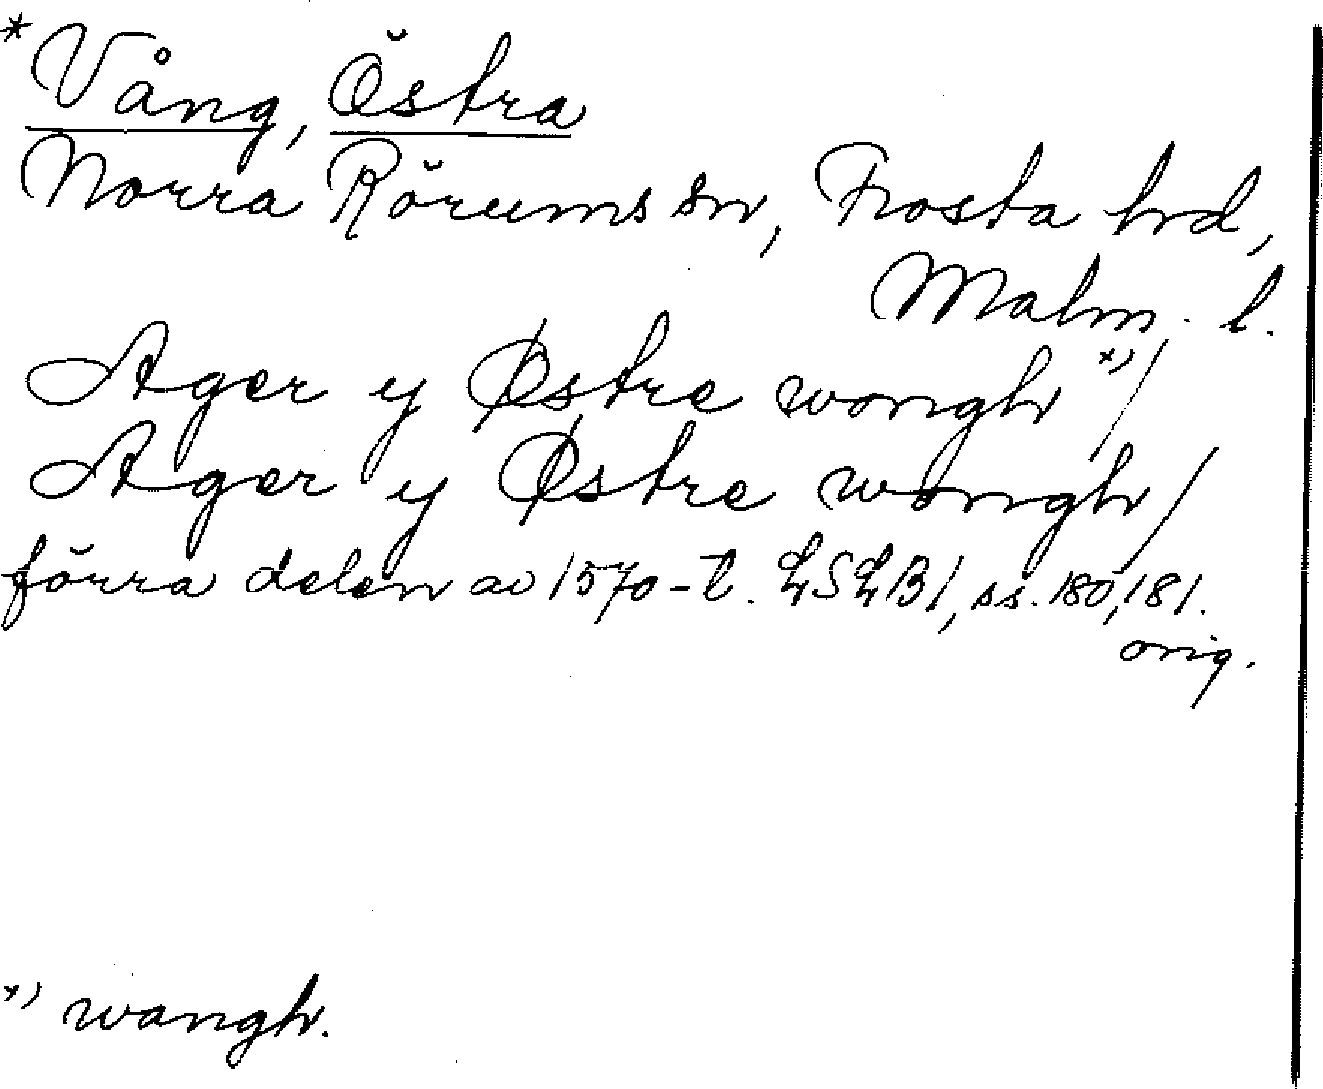 *Vång, Östra
Norra Rörums sn, Frosta hd,
Malm. l.
Ager y Østre wongh *)/
Ager y Østre wongh/
förra delen av 1570-t. LSLB1, ss. 180, 181.
orig.
*) wangh.